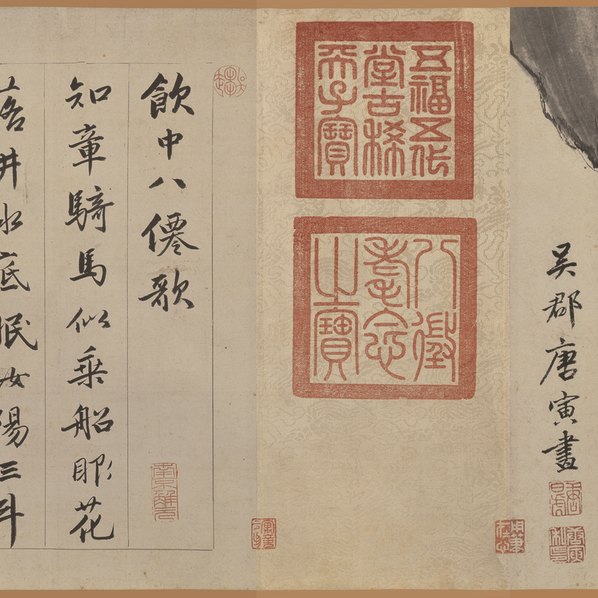 吳郡唐寅畫
五福五代
堂古稀
天子寶
八徵
耄念
之寶
飲中八僊歌
知章騎馬似乘船眼花
落井水底眠汝陽三斗